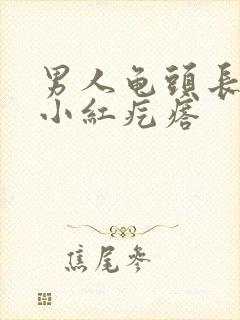 男人龟頭長
小紅疙瘩
焦尾參